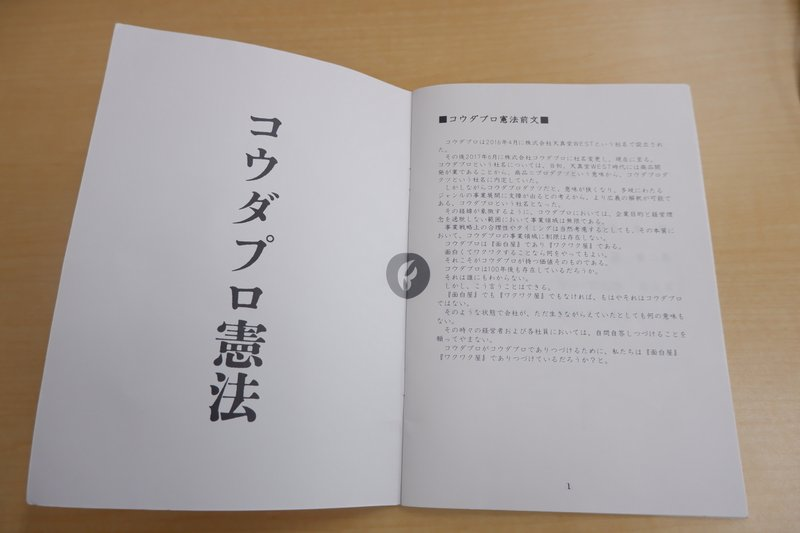 コウダプロ憲法
■コウダプロ憲法前文■
コウダプロは2016年4月に株式会社天真堂WESTという社名で設立され
た。
その後2017年6月に株式会社コウダプロに社名変更し、現在に至る。
コウダプロという社名については、当初、天真堂WEST時代には商品開
発が業であることから、商品=プロダクツという意味から、コウダプロダ
クツという社名に内定していた。
しかしながらコウダプロダクツだと、意味が狭くなり、多岐にわたる
ジャンルの事業展開に支障が出るとの考えから、より広義の解釈が可能で
ある、コウダプロという社名となった。
その経緯が象徴するように、コウダプロにおいては、企業目的と経営理
念を逸脱しない範囲において事業領域は無限である。
事業戦略上の合理性やタイミングは当然考慮するとしても、その本質に
おいて、コウダプロの事業領域に制限は存在しない。
コウダプロは『面白屋』であり『ワクワク屋』である。
面白くてワクワクすることなら何をやってもよい。
それこそがコウダプロが持つ価値そのものである。
コウダプロは100年後も存在しているだろうか。
それは誰にもわからない。
しかし、こう言うことはできる。
『面白屋』でも『ワクワク屋』でもなければ、もはやそれはコウダプロ
ではない。
そのような状態で会社が、ただ生きながらえていたとしても何の意味も
ない。
その時々の経営者および各社員においては、自問自答しつづけることを
願ってやまない。
コウダプロがコウダプロでありつづけるために、私たちは『面白屋』
『ワクワク屋』でありつづけているだろうか?と。
1